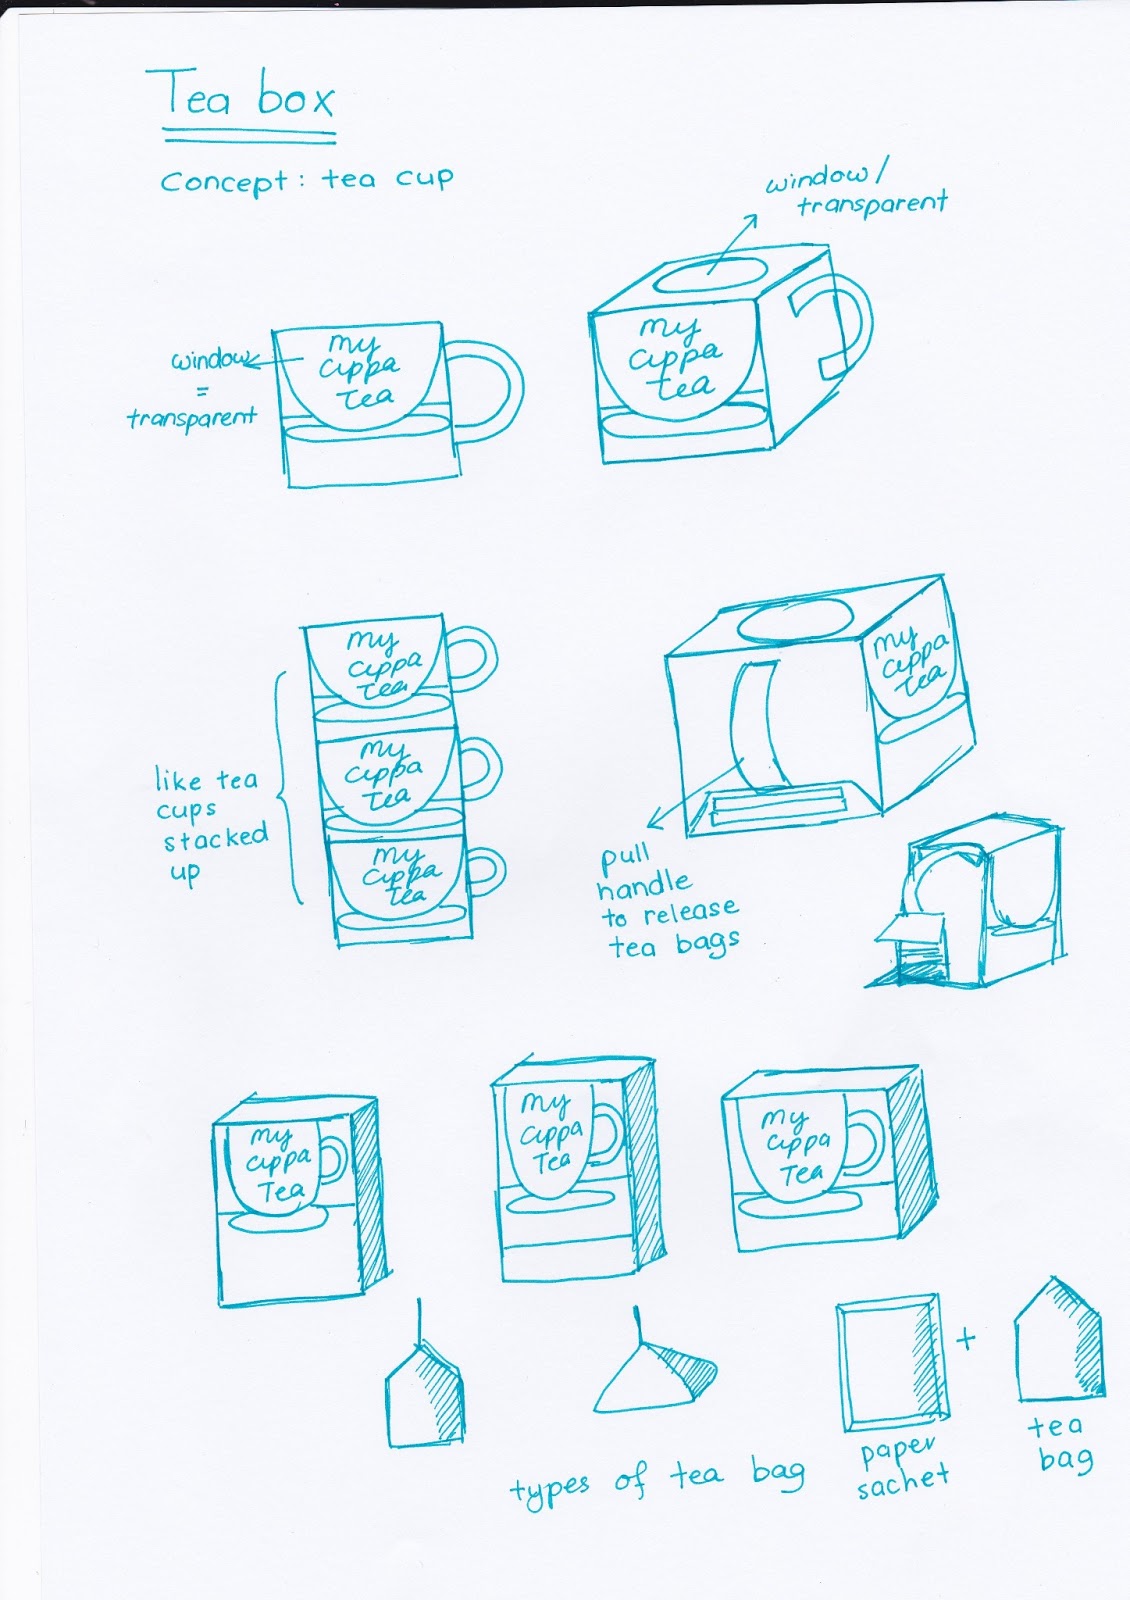 Tea box
Concept: tea cup
window/
transparent
window
=
transparent
my
cuppa
tea
my
cuppa
tea
my
cuppa
tea
my
cuppa
tea
my
cuppa
tea
my
cuppa
tea
like tea
cups
stacked
up
pull
handle
to release
tea bags
my
cuppa
Tea
my
cuppa
Tea
my
cuppa
Tea
+
types of tea bag
paper
sachet
tea
bag